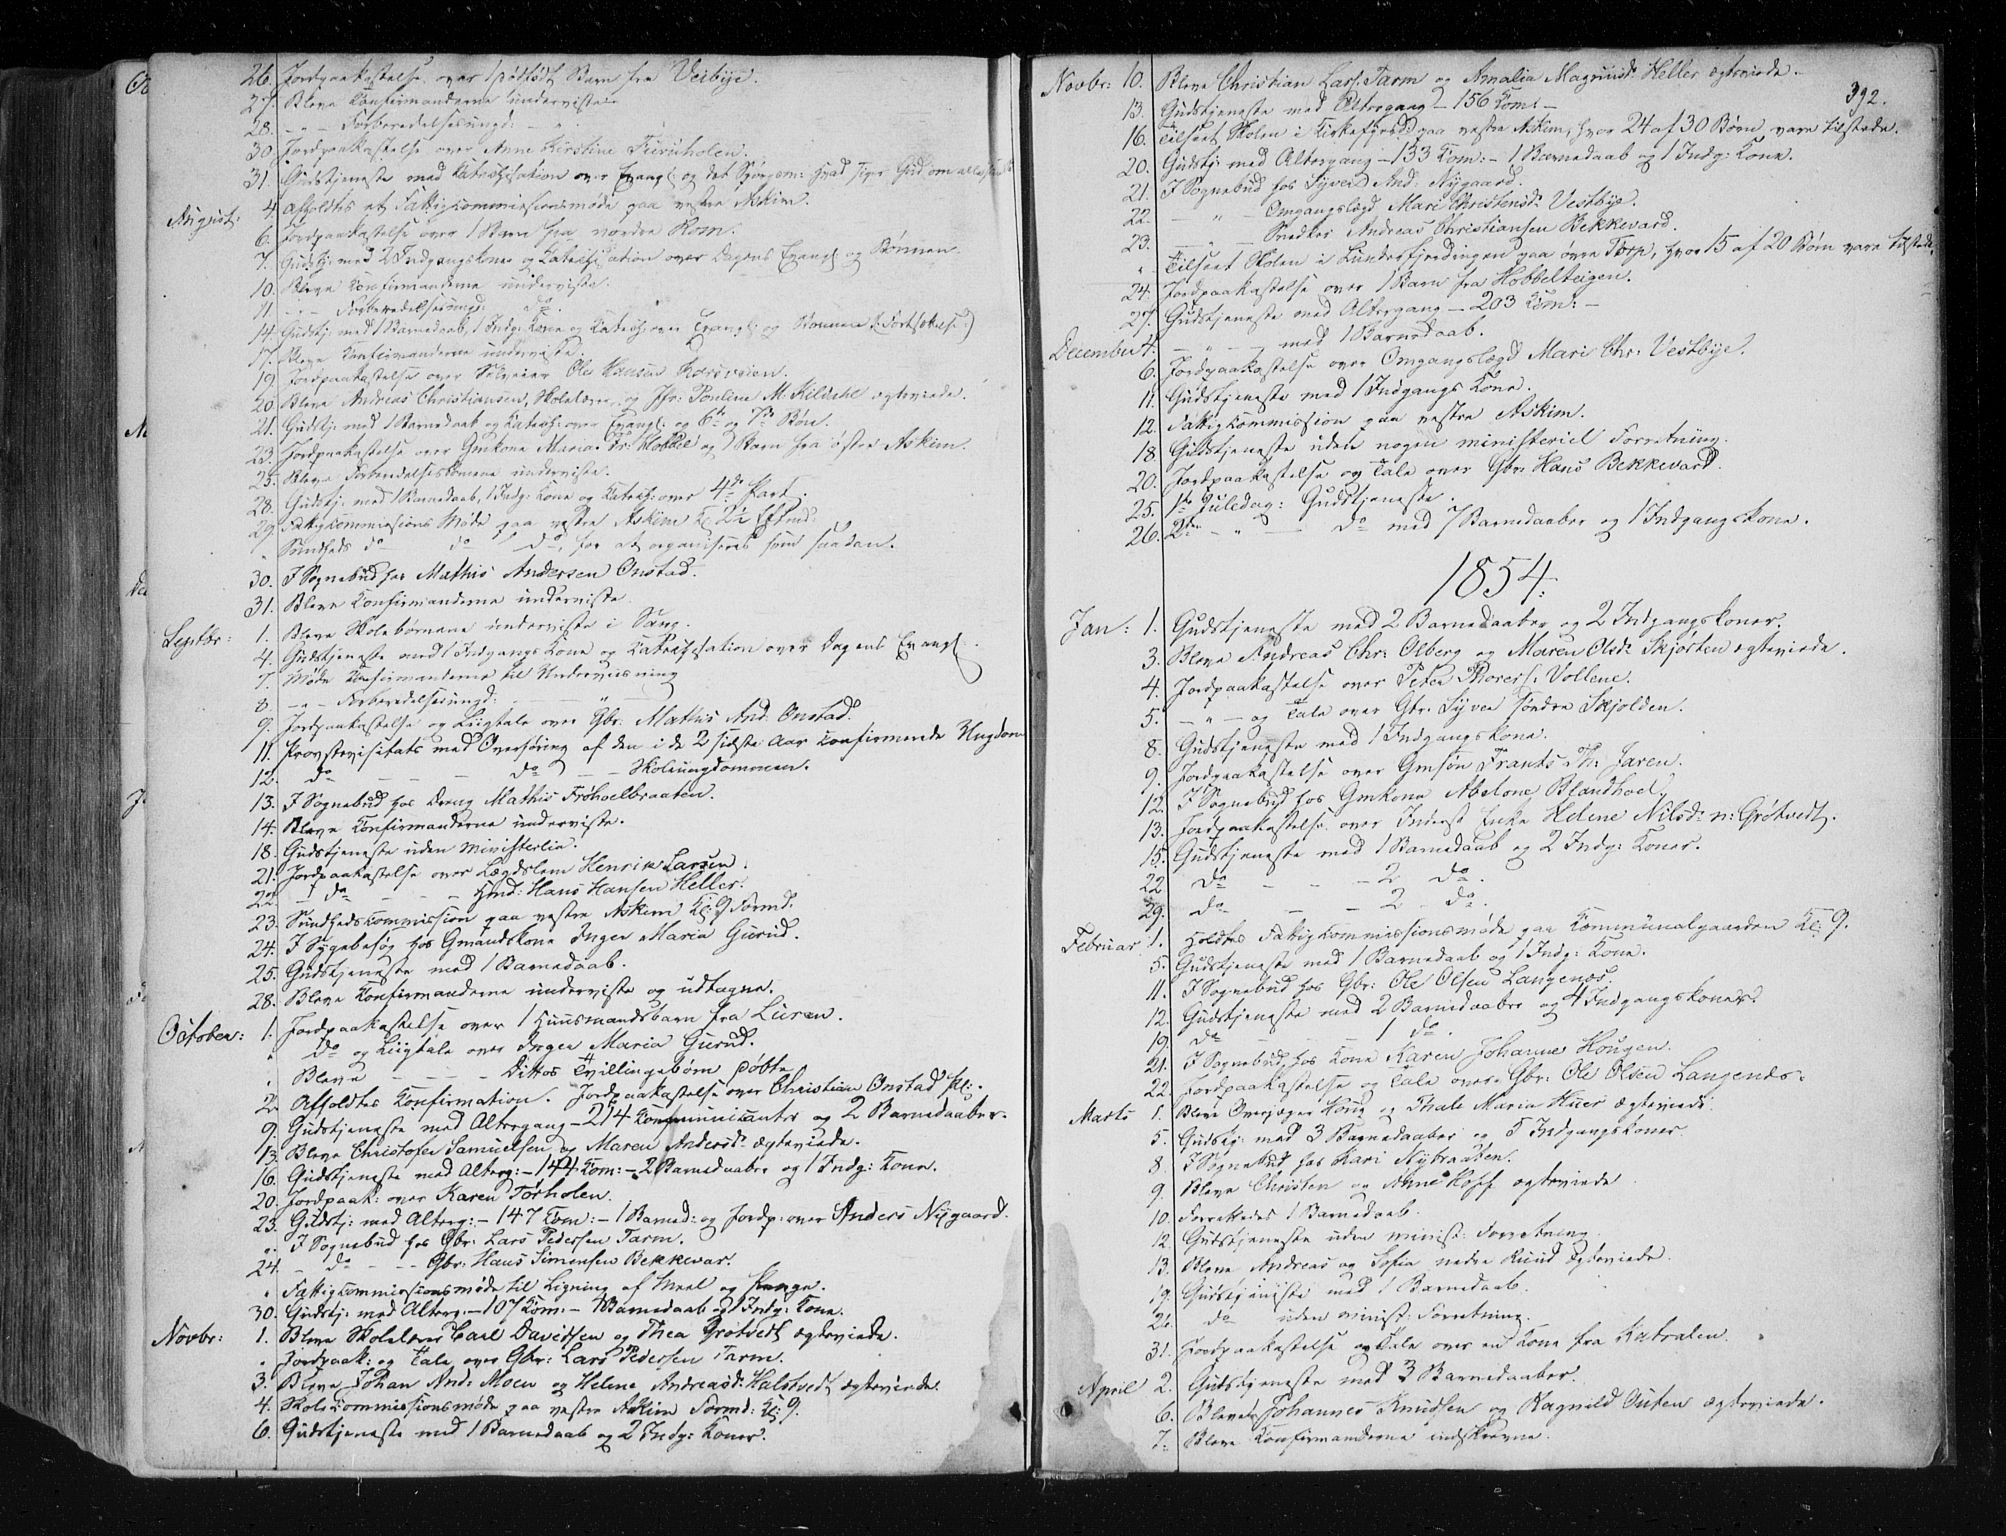 26. Jordpaakastelse over 1 dødfødt Barn fra Veibye.
27. Bleve Konfirmanderne underviste.
28. – " – Forberedelsesungd: – " –
30. Jordpaakastelse over Anne Kirstine Furuholen.
31. Gudstjeneste med Katechisation over Evangl: og det Spørgsm: Hvad siger Gud om alle
August: 4. Afholdtes et Fattigkommissionsmøde paa vestre Askim.
6. Jordpaakastelse over 1 Barn fra nordre Rom.
7. Gudstj: med 2 Indgangskoner og Katechisation over Dagens Evangl: og Bønnen.
10. Bleve Konfirmanderne underviste.
11. – " – Forberedelsesungd: do.
14. Gudstj: med 1 Barnedaab, 1 Indg: Kone og Katech: over Evangl: og Bønnen (: Fortsættelse :)
17. Bleve Konfirmanderne underviste.
19. Jordpaakastelse over Selveier Ole Hansen
20. Bleve Andreas Christiansen, Skolelærer, og Jfr: Pouline M. Kildahl egteviede.
21. Gudstj: med 1 Barnedaab og Katech: over Evangl: og 6te og 7de Bøn.
23. Jordpaakastelse over Gmkone Maria Fr: Hobbel og 1 Barn fra østre Askim.
25. Bleve underviste.
28. Gudstj: med 1 Barnedaab, 1 Indg: Kone og Katech: over 4de Part.
29. Fattigkommissions Møde paa vestre Askim Kl: 2½ Eftmd:
" Sundheds do – do – do, for at organiseres som saadan.
30. I Sognebud hos Mathis Andersen Onstad.
31. Bleve Konfirmanderne underviste.
Septbr: 1. Bleve Skolebørnene underviste i Sang.
4. Gudstjeneste med 1 Indgangskone og Katechisation over Dagens Evangl.
7. Møde Konfirmanderne til Underviisning
8 – " – Forberedelsesungd:
9. Jordpaakastelse og Liigtale over Gbr. Mathis And: Onstad.
11. Provstevisitats med Overhøring af den i de 2 sidste Aar Konfirmerede Ungdom
12. do – – – do – – Skoleungdommen.
13. I Sognebud hos Dreng Mathis Frøhaelbraaten.
14. Bleve Konfirmanderne underviste.
18. Gudstjeneste uden Ministerlia.
21. Jordpaakastelse over Lægdslem Henrik Larsen.
22. – do – – – Hmd: Hans Hansen Heller.
23. Sundhedskommission paa vestre Askim Kl: 9 Formd:
24. I Sygebesøg hos Gmandskone Inger Maria Gurud.
25. Gudstjeneste med 1 Barnedaab.
28. Bleve Konfirmanderne underviste og udtagne.
October: 1. Jordpaakastelse over 1 Huusmandsbarn fra Luren.
" do og Liigtale over Inger Maria Gurud.
" Bleve – – – – Dittos Tvillingebørn døbte
2. Afholdtes Konfirmation. Jordpaakastelse over Christian Onstad
9. Gudstjeneste med Altergang – 214 Kommunicanter og 2 Barnedaaber.
13. Bleve Christofer Samuelsen og Maren Andersd: egteviede.
16. Gudstjeneste med Alterg: – 144 Kom: – 2 Barnedaabe og 1 Indg: Kone.
20. Jordpaak: over Karen Tørholen.
23. Gudstj: med Alterg: – 147 Kom: – 1 Barned: og Jordp: over Anders Nygaard.
" I Sognebud hos Gbr: Lars Pedersen Tarm.
24. – do – – – Gbr: Hans Simensen Bekkevar.
" Fattigkommissionsmøde til Ligning af Meel og Penge.
30. Gudstj: med Alterg: – 107 Kom: – 1 Barnedaab og 1 Indg: Kone.
Novbr: 1. Bleve Skolelærer Carl Davidsen og Thea Grøtvedt egteviede.
" Jordpaak: og Tale over Gbr: Lars Pedersen Tarm.
3. Bleve Johan And: Moen og Helene Andreasd: Halstvedt egteviede
4. Skolekommissionsmøde paa vestre Askim Formd: Kl: 9.
6. Gudstjeneste med 1 Barnedaab og 2 Indg: Koner.
392.
Novbr: 10. Bleve Christian Lars: Tarm og Amalia Magnusd: Heller egteviede.
13. Gudstjeneste med Altergang – 156 Kom: –
16. Tilseet Skolen i Kirkefjerd: paa vestre Askim, hvor 24 af 30 Børn vare tilstede.
20. Gudstj: med Altergang – 133 Kom: – 1 Barnedaab og 1 Indg: Kone.
21. I Sognebud hos Syver And: Nygaard.
22. – " – Omgangslægd Mari Christensd: Vestbye.
23. – " – Snedker Andreas Christiansen Bekkevard.
" Tilseet Skolen i Lundesfjerdingen paa øvre Torp, hvor 15 af 20 Børn vare tilstede
24. Jordpaakastelse over 1 Barn fra Hobbelteigen.
27. Gudstjeneste med Altergang – 203 Kom: –
December 4. – " – med 1 Barnedaab.
6. Jordpaakastelse over Omgangslægd Mari Chr: Vestbye.
11. Gudstjeneste med 1 Indgangs Kone.
12. Fattigkommission paa vestre Askim.
18. Gudstjeneste uden nogen ministeriel Forretning.
20. Jordpaakastelse og Tale over Gbr: Hans Bekkevard.
25. 1ste Juledag: Gudstjeneste.
26. 2den – " – do med 7 Barnedaaber og 1 Indgangskone.
1854.
Jan: 1. Gudstjeneste med 2 Barnedaaber og 2 Indgangskoner.
3. Bleve Andreas Chr: Olberg og Maren Olsd: Skjørten egteviede.
4. Jordpaakastelse over Peter Thorers: Vollene.
5. – " – og Tale over Gbr. Syver søndre Skjolden.
8. Gudstjeneste med 1 Indgangskone.
9. Jordpaakastelse over Gmsøn Frants Th: Jaren.
12. I Sognebud hos Gmkone Abelone Blandhoel.
13. Jordpaakastelse over Inderst Enke Helene Nilsd: n: Grøtvedt.
15. Gudstjeneste med 1 Barnedaab og 2 Indg: Koner.
22 do – – – 2 do.
29. do – – 2 – do.
Februar 1. Holdtes Fattigkommissionsmøde paa Kommunalgaarden Kl: 9.
5. Gudstjeneste med 1 Barnedaab og 1 Indg: Kone.
11. I Sognebud hos Gbr: Ole Olsen Langenæs.
12. Gudstjeneste med 2 Barnedaaber og 4 Indgangskoner.
19. do – – – 1 do.
21. I Sognebud hos Kone Karen Johanne Hougen.
22. Jordpaakastelse og Tale over Gbr: Ole Olsen Langenæs.
Marts 1. Bleve Overjæger Houg og Thale Maria Huer egteviede.
5. Gudstj: med 3 Barnedaaber og 5 Indgangskoner.
8 I Sognebud hos Kari Nybraaten.
9. Bleve Christen og Anne Hoff egteviede
10. Forrettedes 1 Barnedaab.
12 Gudstjeneste uden minist: Forretning.
13. Bleve Andreas og Sofia nedre Ruud egteviede.
19. Gudstjeneste med 1 Barnedaab.
26. do uden minist: Forretning.
31. Jordpaakastelse og Tale over en Kone fra Katralen.
April 2. Gudstjeneste med 3 Barnedaaber.
6. Bleve Johannes Knudsen og Ragnild Outen egteviede.
7. Bleve Konfirmanderne indskrevne.